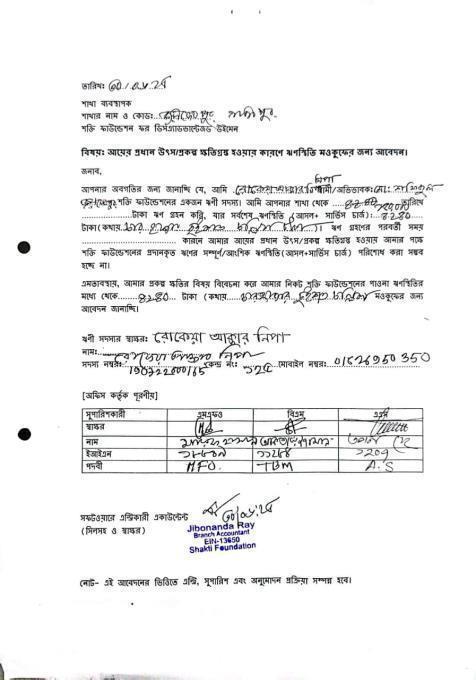 তারিখঃ ৩০/০৮/২৪
শাখা ব্যবস্থাপক
শাখার নাম ও কোডঃ
শক্তি ফাউন্ডেশন ফর ডিসএ্যাডভান্টেজড উইমেন
বিষয়ঃ আয়ের প্রধান উৎস/প্রকল্প ক্ষতিগ্রস্ত হওয়ার কারণে ঋণস্থিতি মওকুফের জন্য আবেদন।
জনাব,
আপনার অবগতির জন্য জানাচ্ছি যে, আমি রোকেয়া আক্তার নিপা স্বামী/অভিভাবকঃ মোঃ
শক্তি ফাউন্ডেশনের একজন ঋণী সদস্য। আমি আপনার শাখা থেকে তারিখে
টাকা ঋণ গ্রহন করি, যার সর্বশেষ ঋণস্থিতি (আসল+ সার্ভিস চার্জ)ঃ ৪২৪০
টাকা (কথায়ঃ চার হাজার দুইশত চল্লিশ টাকা) ঋণ গ্রহণের পরবর্তী সময়
কারনে আমার আয়ের প্রধান উৎস/প্রকল্প ক্ষতিগ্রস্ত হওয়ায় আমার পক্ষে
শক্তি ফাউন্ডেশনের প্রদানকৃত ঋণের সম্পূর্ণ/আংশিক ঋণস্থিতি(আসল+সার্ভিস চার্জ) পরিশোধ করা সম্ভব
হচ্ছে না।
এমতাবস্থায়, আমার প্রকল্প ক্ষতির বিষয় বিবেচনা করে আমার নিকট শক্তি ফাউন্ডেশনের পাওনা ঋণস্থিতির
মধ্যে থেকে ৪২৪০ টাকা (কথায় চার হাজার দুইশত চল্লিশ) মওকুফের জন্য
আবেদন জানাচ্ছি।
ঋণী সদস্যর স্বাক্ষরঃ রোকেয়া আক্তার নিপা
নামঃ রোকেয়া আক্তার নিপা
সদস্য নম্বরঃ 190722600165 কেন্দ্র নং: 326 মোবাইল নম্বরঃ 01626950350
[অফিস কর্তৃক পূরণীয়]
সুপারিশকারী এমএফও বিএম এএস
স্বাক্ষর
নাম
ইআইএন ১২৮৪
পদবী MFO. TBM A.S
সফটওয়ারে এন্ট্রিকারী একাউন্টেন্ট
(সিলসহ ও স্বাক্ষর)
Jibonanda Ray
Branch Accountant
EIN-13650
Shakti Foundation
(নোট- এই আবেদনের ভিত্তিতে এন্ট্রি, সুপারিশ এবং অনুমোদন প্রক্রিয়া সম্পন্ন হবে।